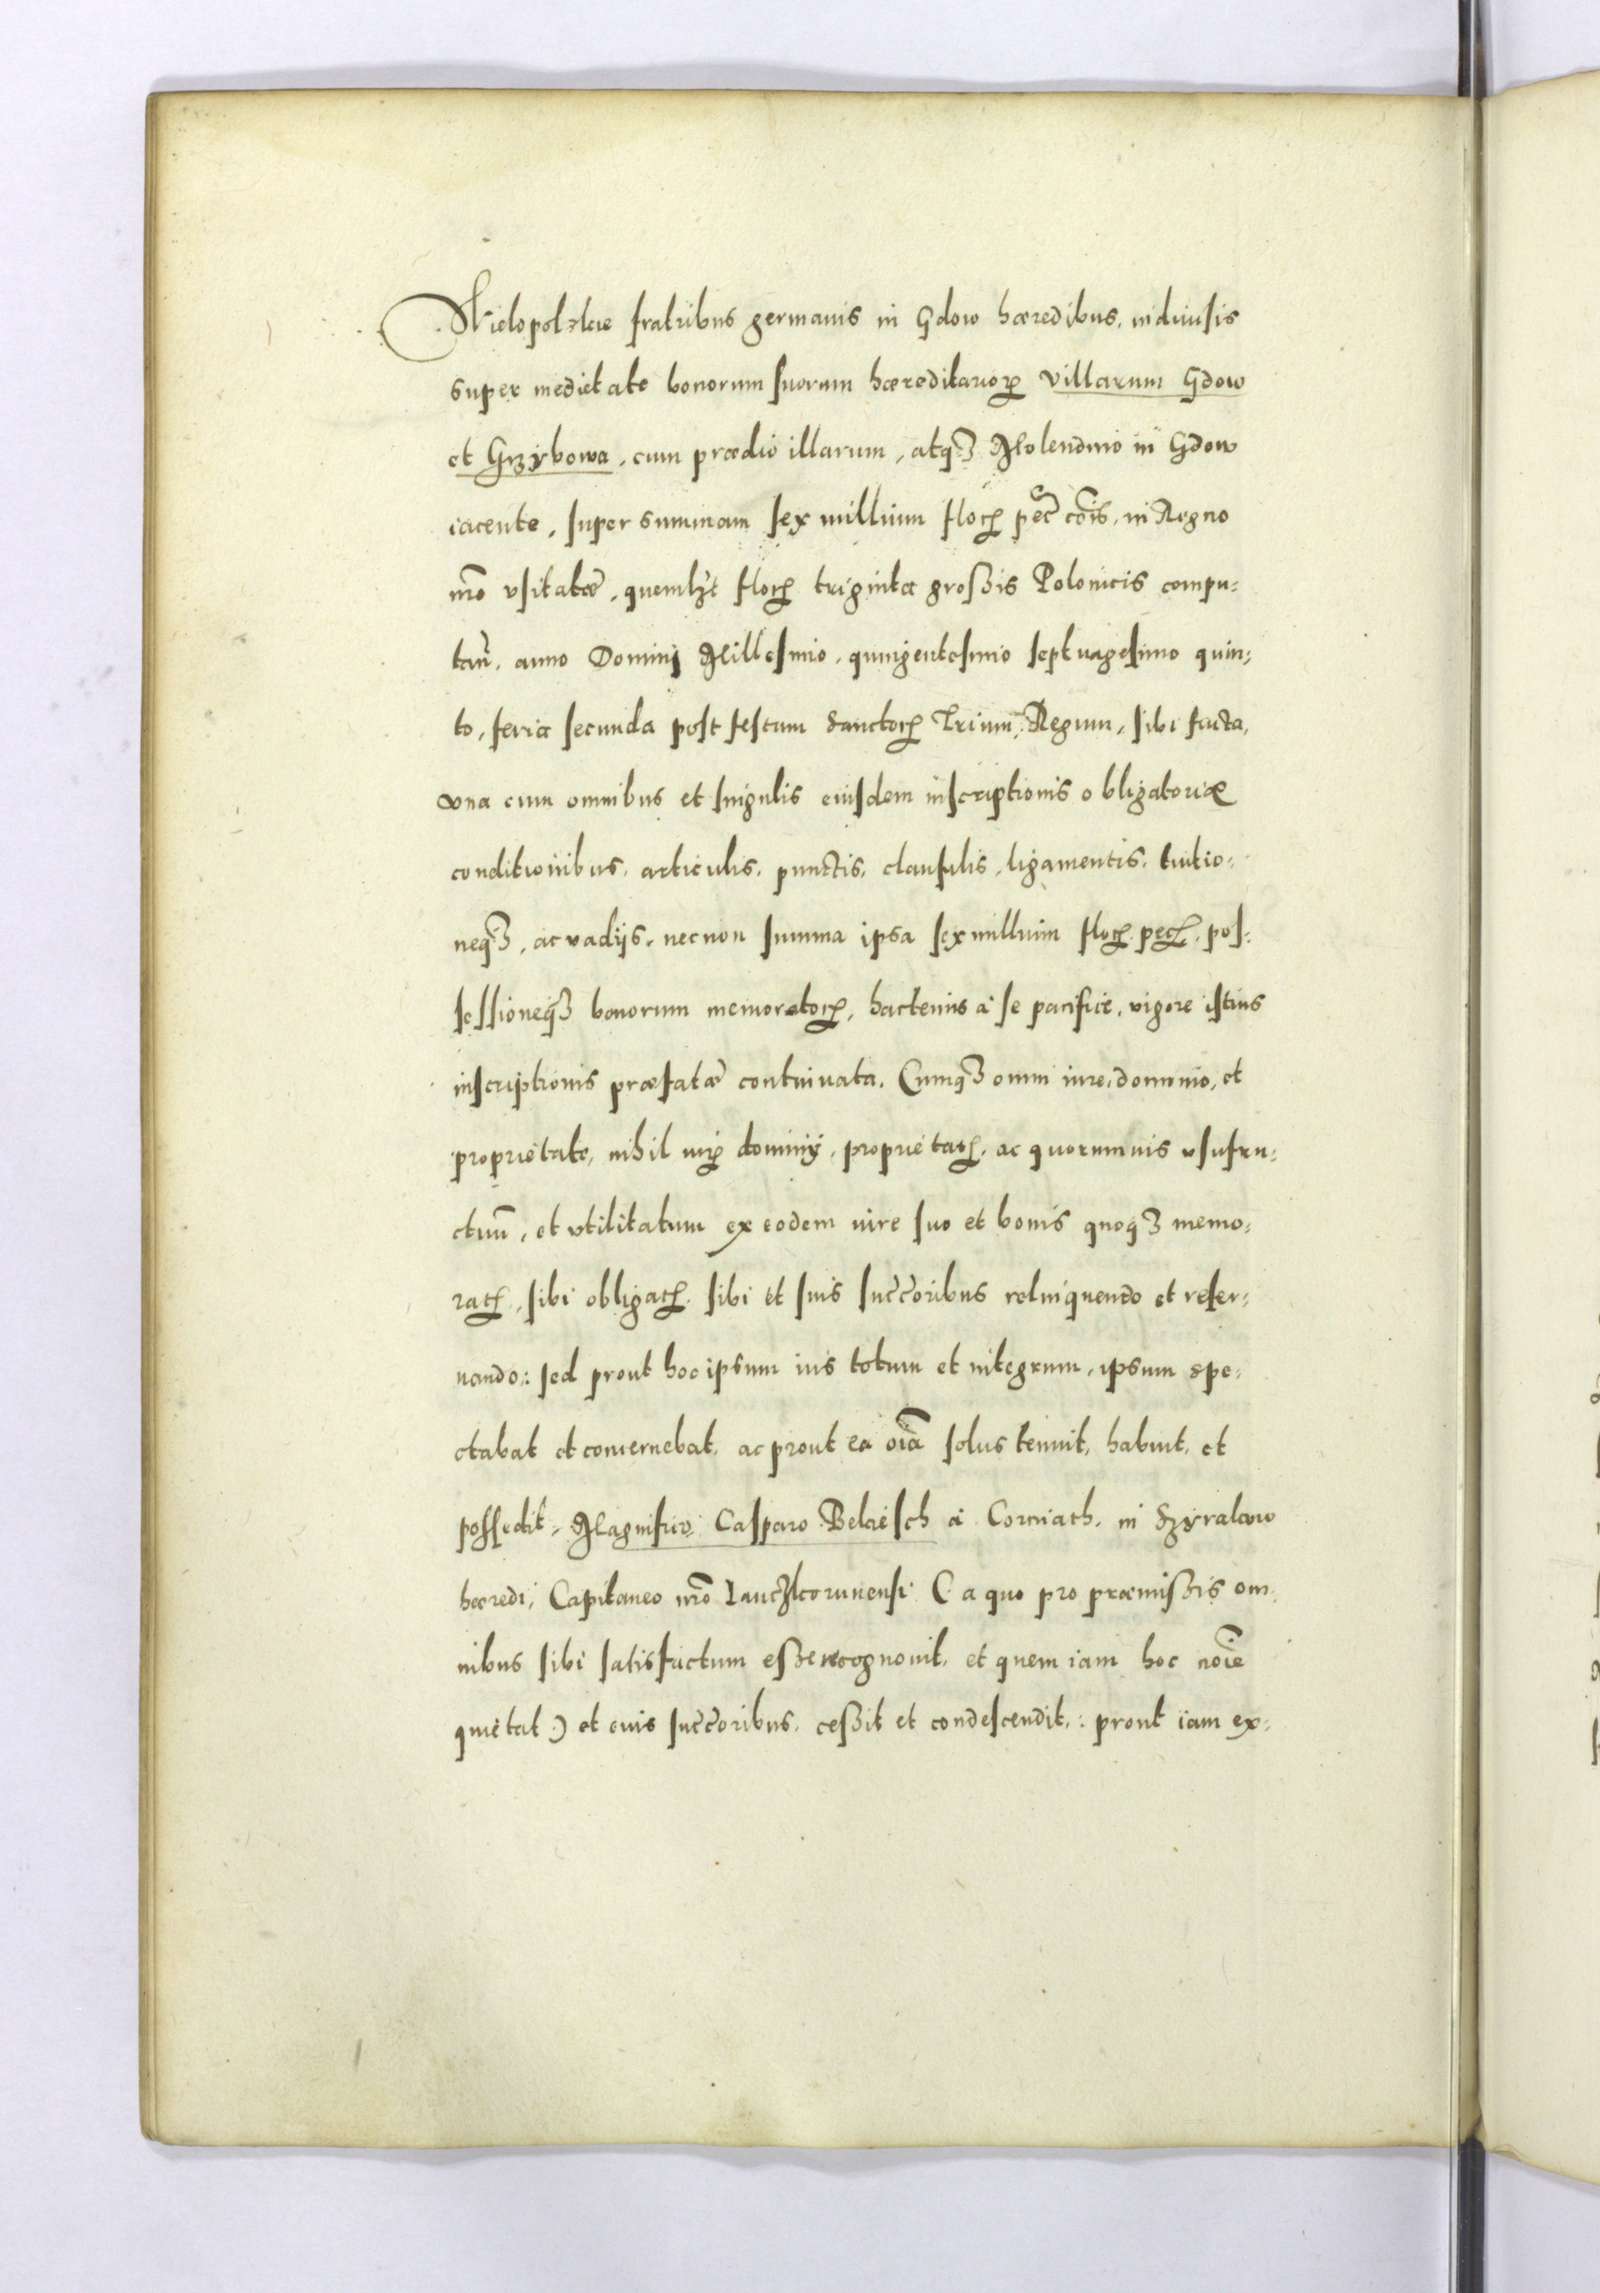 Wielopolzkie fratribus germanis in Gdow hæredibus, indiuisis
super medietate bonorum suorum hæreditariorꝝ villarum Gdow
et Grzybowa, cum prædio illarum, atqꝫ Molendino in Gdow
iacente, super summam sex millium florꝝ pec̃ cõis, in Regno
nr̃o vsitatæ, quemlꝫt florꝝ triginta groszis Polonicis compu⸗
tañ, anno Domini Millesimo, quingentesimo septuagesimo quin⸗
to, feria secunda post festum Sanctorꝝ Trium Regum, sibi facta,
vna cum omnibus et singulis eiusdem inscriptionis obligatoriæ
conditionibus, articulis, punctis, clausulis, ligamentis, euictio⸗
neqꝫ, ac vadijs, necnon summa ipsa sex millium florꝝ pecꝝ, pos⸗
sessioneqꝫ bonorum memoratorꝝ, hactenus à se pacifice, vigore istius
inscriptionis præfatæ continuata. Cumqꝫ omni iure, dominio, et
proprietate, nihil iurꝭ dominij, proprietatꝭ, ac quorumuis vsufru⸗
ctuũ, et vtilitatum ex eodem iure suo et bonis quoqꝫ memo⸗
ratꝭ, sibi obligatꝭ, sibi et suis succ̃oribus relinquendo et reser⸗
uando: sed prout hoc ipsum ius totum et integrum, ipsum spe⸗
ctabat et concernebat, ac prout ea oĩa solus tenuit, habuit, et
possedit, Magnifico Casparo Bekiesch à Corniath, in Szyralow
hæredi, Capitaneo nr̃o Lanczkorunensi (: a quo pro præmiszis om⸗
nibus sibi satisfactum esze recognouit, et quem iam hoc noĩe
quietat :) et eius succ̃oribus, ceszit et condescendit: prout iam ex⸗